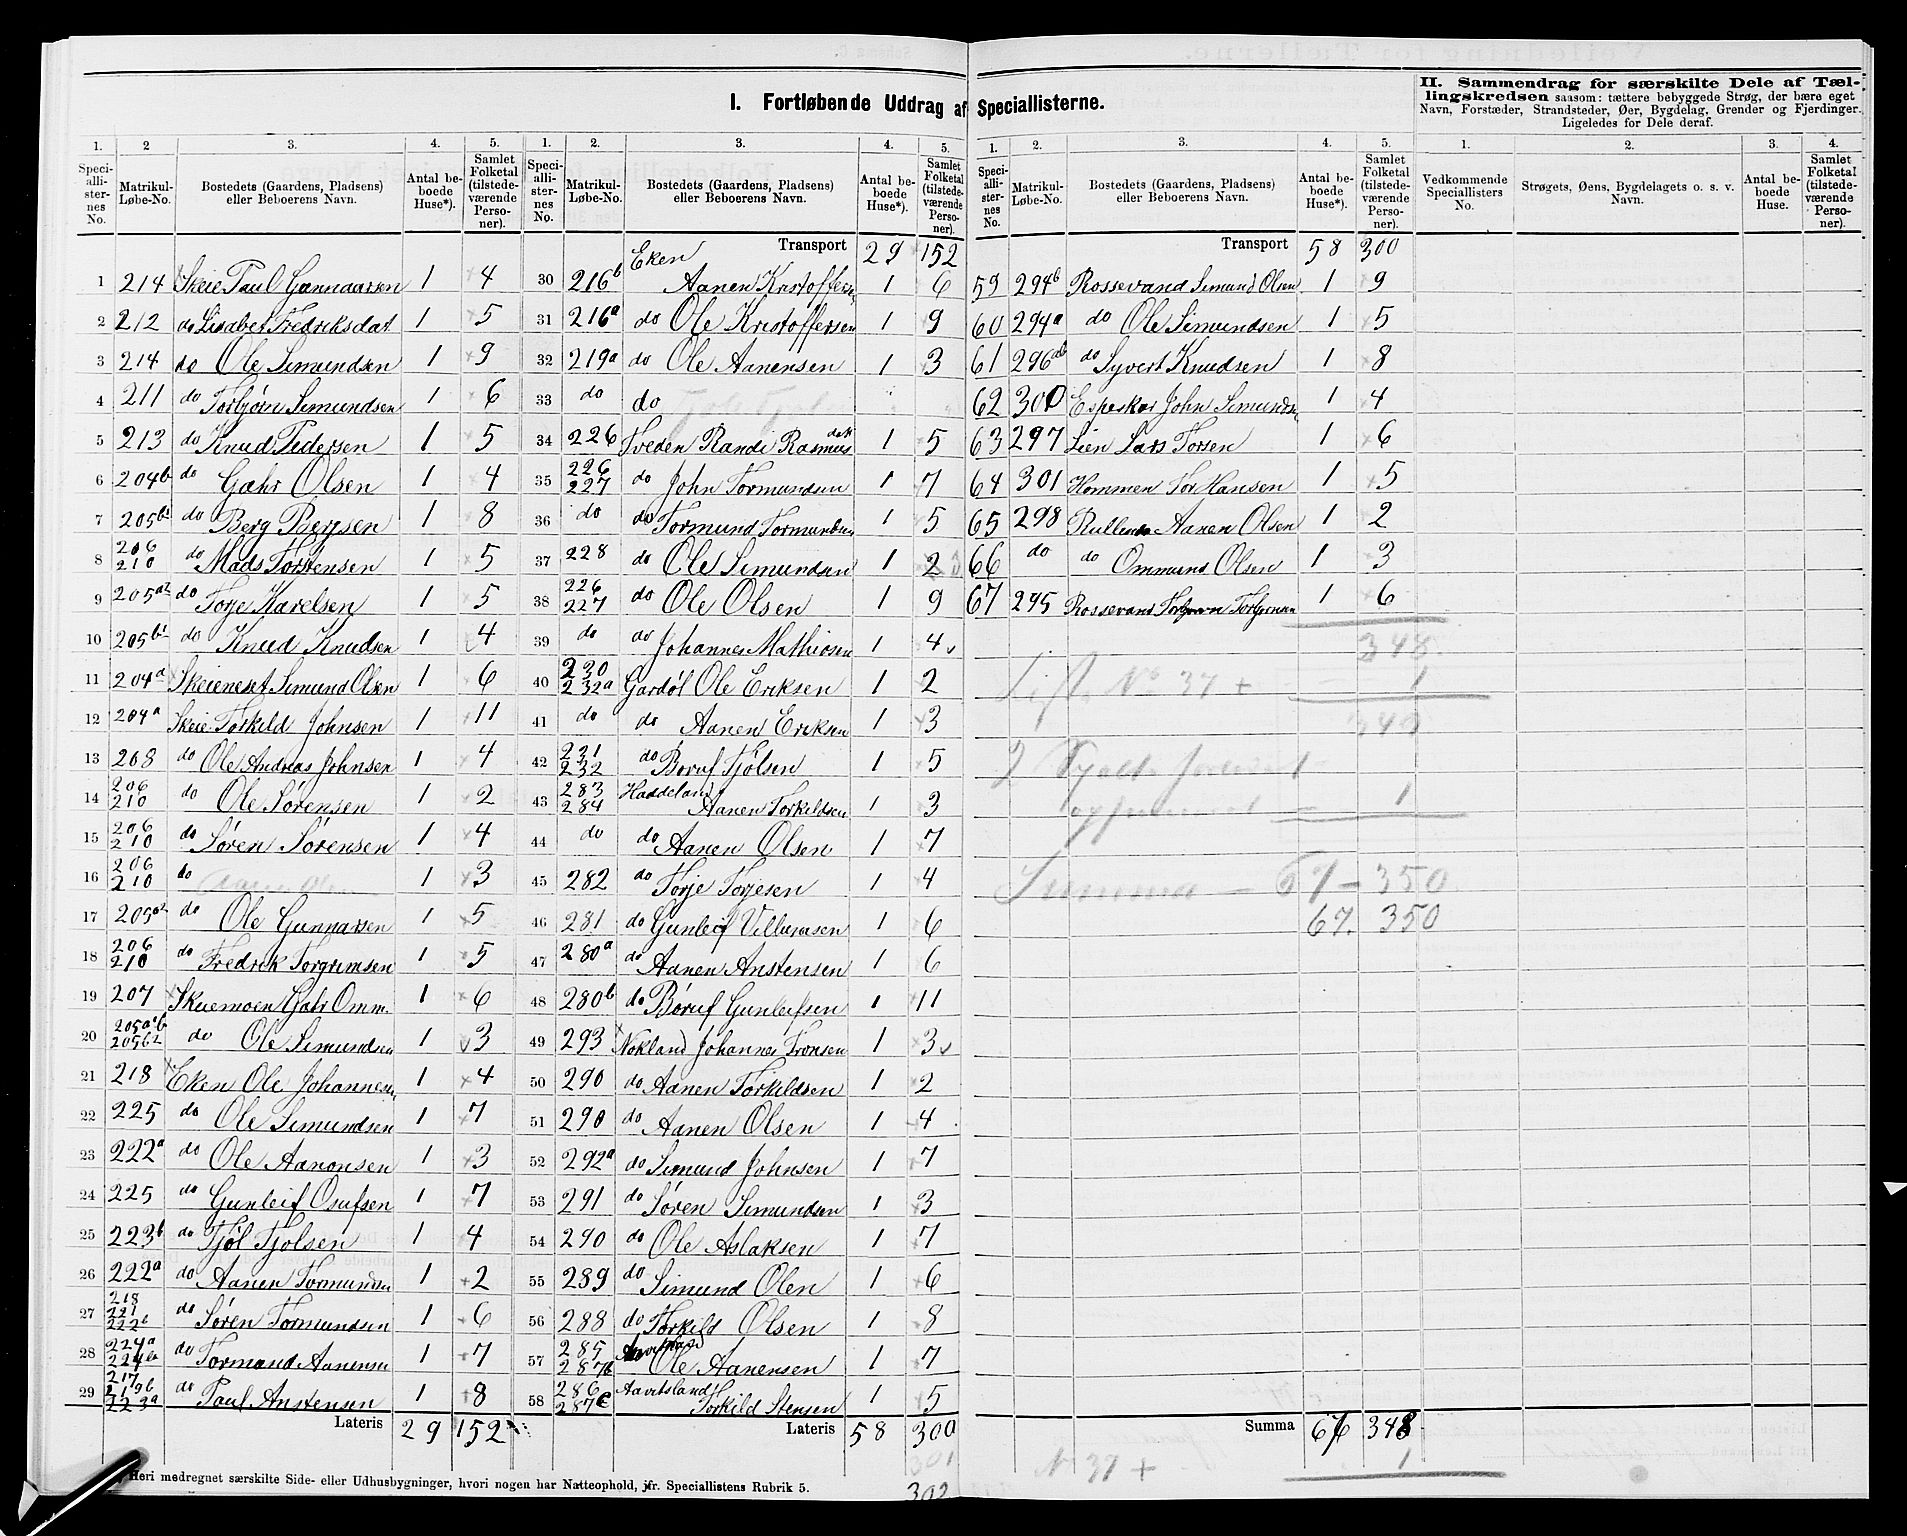 I. Fortløbende Uddrag af Speciallisterne.
II. Sammendrag for særskilte Dele af Tællingskredsen saasom: tættere bebyggede Strøg, der bære eget
Navn, Forstæder, Strandsteder, Øer, Bygdelag, Grender og Fjerdinger.
Ligeledes for Dele deraf.
1. 2 3. 4. 5.
Speciallisternes No. Matrikul-Løbe-No. Bostedets (Gaardens, Pladsens) eller Beboerens Navn. Antal beboede Huse*). Samlet Folketal (tilstedeværende Personer).
1 214 Skeie Paul Gunnarsen 1 4
2 212 do Lisabet Fredriksdat 1 5
3 214 do Ole Simundsen 1 9
4 211 do Torbjørn Simundsen 1 6
5 213 do Knud Pedersen 1 5
6 204b do Gahr Olsen 1 4
7 205b1 do Berg Bergsen 1 8
8 206 210 do Mads Torstensen 1 5
9 205a2 do Torje Karelsen 1 5
10 205b1 do Knud Knudsen 1 4
11 204a Skeieneset Simund Olsen 1 6
12 204a Skeie Torkild Johnsen 1 11
13 208 do Ole Andreas Johnsen 1 4
14 206 210 do Ole Sørensen 1 2
15 206 210 do Søren Sørensen 1 4
16 206 210 do 1 3
17 205a2 do Ole Gunnarsen 1 5
18 206 210 do Fredrik Torgrimsen 1 5
19 207 Skeiemoen Gahr Omm. 1 6
20 205a1b 205b2 do Ole Simundsen 1 3
21 218 Eken Ole Johannesen 1 4
22 225 do Ole Simundsen 1 7
23 222a do Ole Aanonsen 1 3
24 225 do Gunleif Osufsen 1 7
25 223b do Tjøl Tjølsen 1 4
26 222a do Aanen Tormundsen 1 2
27 218 221 222b do Søren Tormundsen 1 6
28 224a 224b do Tormund Aanensen 1 7
29 217 219b 223a do Paul Anstensen 1 8
Lateris 29 152
1. 2. 3. 4. 5.
Speciallisternes No. Matrikul-Løbe-No. Bostedets (Gaardens, Pladsens) eller Beboerens Navn. Antal beboede Huse*). Samlet Folketal (tilstedeværende Personer).
Transport 29 152
30 216b Eken Aanen Kristoffersen 1 6
31 216a do Ole Kristoffersen 1 9
32 219a do Ole Aanensen 1 3
33 do do
34 226 Tveden Randi Rasmusdatt 1 5
35 226 227 do John Tormundsen 1 7
36 do do Tormund Tormundsen 1 5
37 228 do Ole Simundsen 1 2
38 226 227 do Ole Olsen 1 9
39 do do Johannes Mathiesen 1 4
40 230 232a Gardøl Ole Eriksen 1 2
41 do do Aanen Eriksen 1 3
42 231 232 do Boruf Tjølsen 1 5
43 283 284 Haddeland Aanen Torkildsen 1 3
44 do do Aanen Olsen 1 7
45 282 do Torje Torjesen 1 4
46 281 do Gunleif Villumsen 1 6
47 280a do Aanen Anstensen 1 6
48 280b do Børuf Gunleifsen 1 11
49 293 Nokland Johannes Tronsen 1 3
50 290 do Aanen Torkildsen 1 2
51 290 do Aanen Olsen 1 4
52 292a do Simund Johnsen 1 7
53 291 do Søren Simundsen 1 3
54 290 do Ole Aslaksen 1 7
55 289 do Simund Olen 1 6
56 288 do Torkild Olsen 1 8
57 285 287b Ole Aanensen 1 7
58 286 287c Aavitsland Torkild Stensen 1 5
Lateris 58 300
301
302
*) Heri medregnet særskilte Side- eller Udhusbygninger, hvori nogen har Natteophold, jfr. Speciallistens Rubrik 5.
1. 2. 3. 4. 5.
Speciallisternes No. Matrikul-Løbe-No. Bostedets (Gaardens, Pladsens) eller Beboerens Navn. Antal beboede Huse*). Samlet Folketal (tilstedeværende Personer).
Transport 58 300
59 294b Rossevand Simund Olsen 1 9
60 294a do Ole Simundsen 1 5
61 296ab do Syvert Knudsen 1 8
62 300 Espeskar John Simundsen 1 4
63 297 Lien Lars Torsen 1 6
64 301 Hommen Tor Hansen 1 5
65 298 Aanen Olsen 1 2
66 do do Ommund Olsen 1 3
67 295 Rossevand 1 6
348
List No 37 + 1
349
1
Summa — 67 — 350
67. 350
Summa 67 348
No 37 + 1
1. 2. 3. 4.
Vedkommende Speciallisters No. Strøgets, Øens, Bygdelagets o. s. v. Navn. Antal beboede Huse. Samlet Folketal (tilstedeværende Personer).